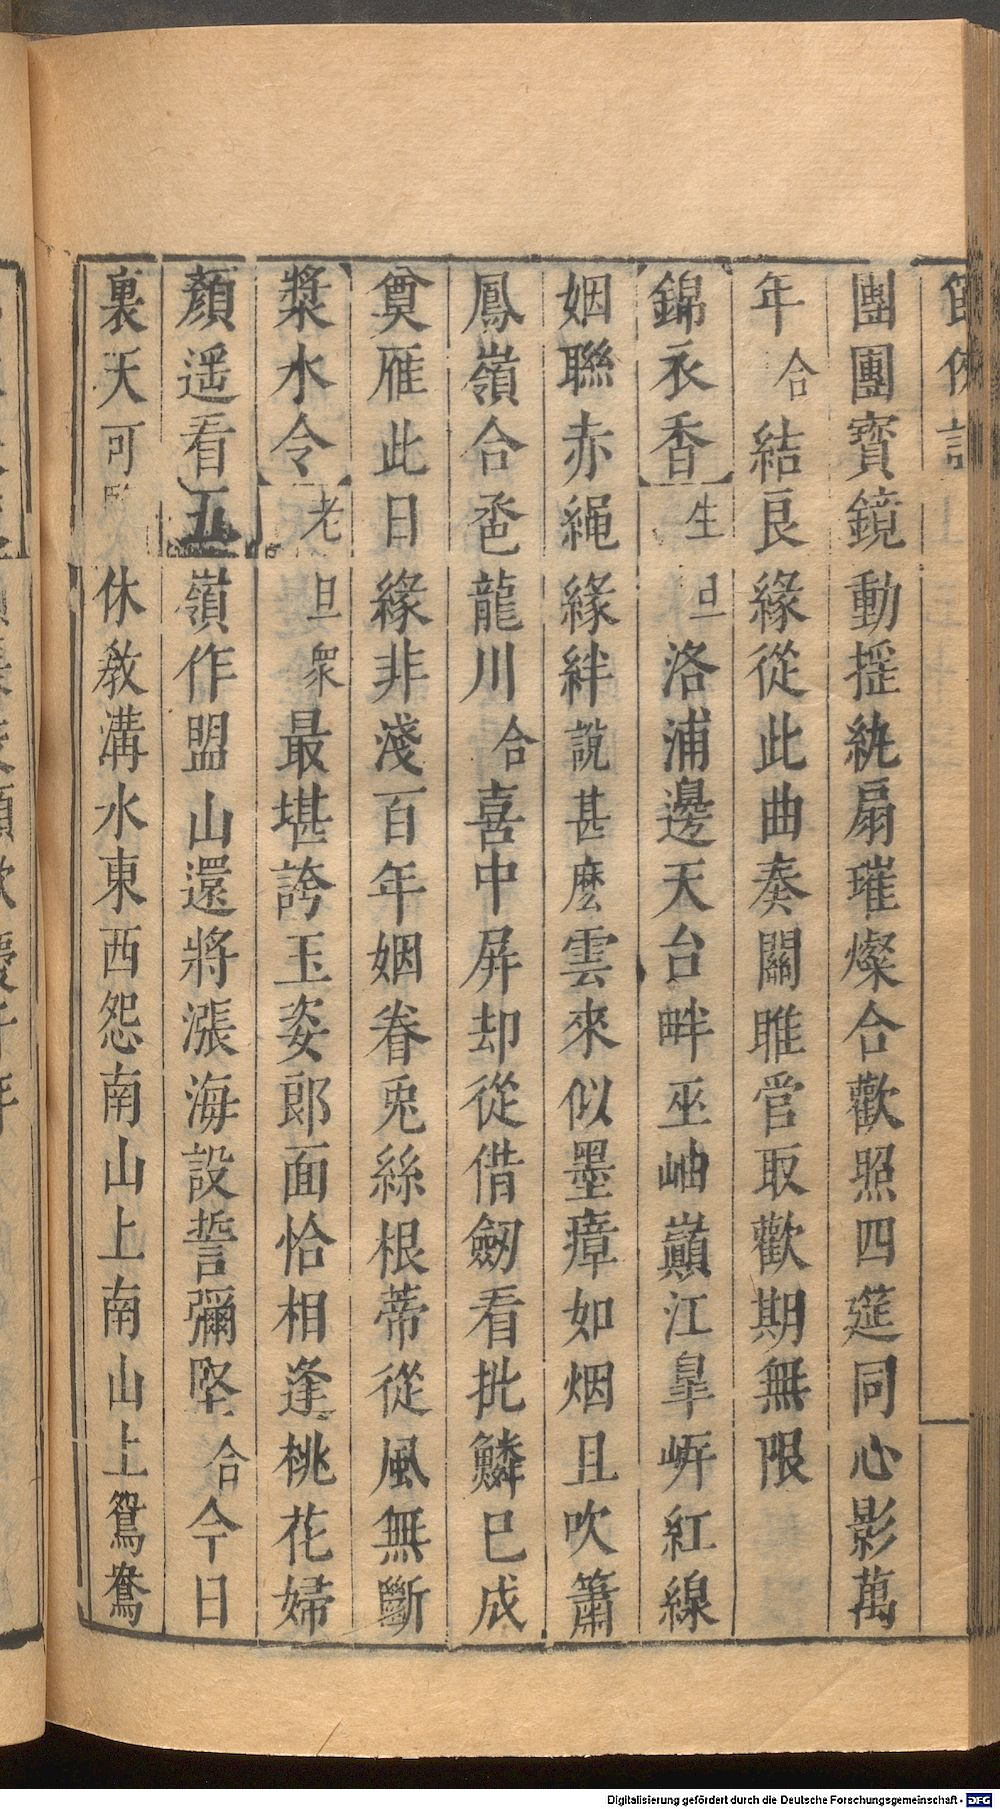 團團寳鏡動搖紈扇璀燦合歡照四筵同心影萬
年合結良緣從此曲奏關雎管取歡期無限
錦衣香生旦洛浦邊天台畔巫岫巔江臯㟁紅線
姻聯赤繩緣絆說甚麽雲來似墨瘴如烟且吹簫
鳳嶺合巹龍川合喜中屏却從借劒看批鱗已成
奠雁此日緣非淺百年姻眷兎絲根蒂從風無斷
漿水令老旦衆最堪誇玉姿郎面恰相逢桃花婦
顏遥看五嶺作盟山還將漲海設誓彌堅合今日
裏天可休教溝水東西怨南山上南山上鴛鴦
Digitalisierung gefördert durch die Deutsche Forschungsgemeinschaft - DFG